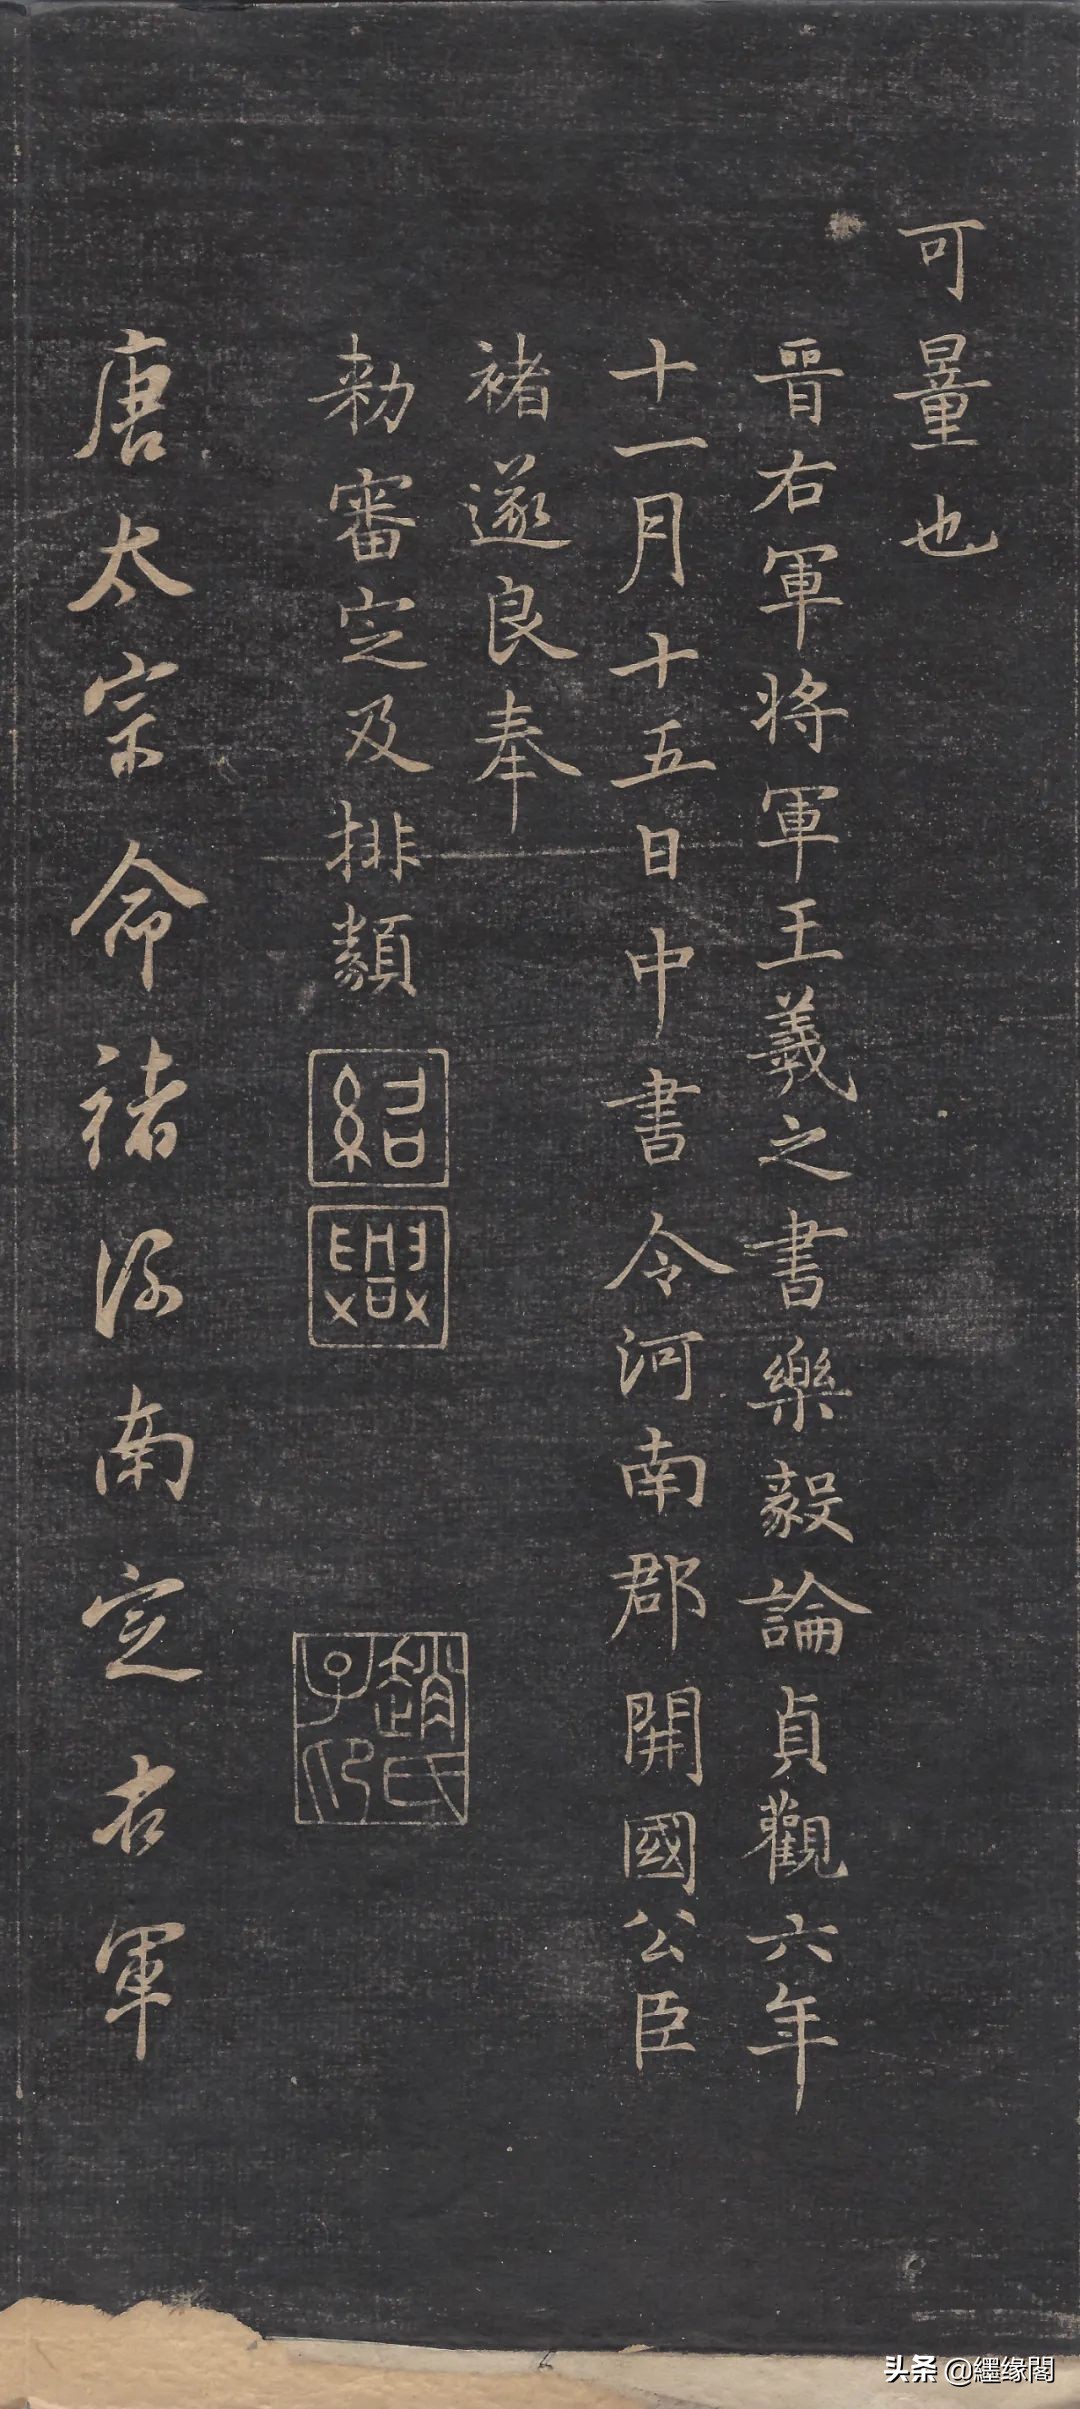 可量也
晉右軍將軍王羲之書樂毅論貞觀六年
十一月十五日中書令河南郡開國公臣
褚遂良奉
勅審定及排類
紹
興
趙氏
子印
唐太宗命褚河南定右軍
头条 @纆缘閣